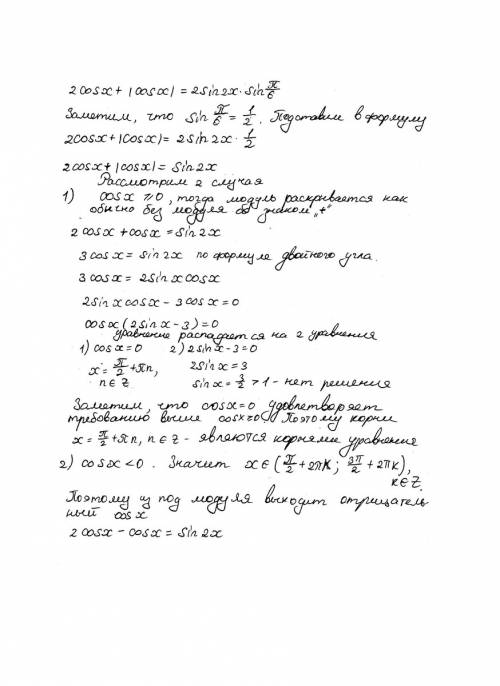 2cosx + |cosx| = 2sin2x · sin π/6
Заметим, что sin π/6 = 1/2. Подставим в формулу
2cosx + |cosx| = 2sin2x · 1/2
2cosx + |cosx| = sin2x
Рассмотрим 2 случая
1) cosx ⩾ 0, тогда модуль раскрывается как
обычно без модуля со знаком „+"
2cosx + cosx = sin2x
3cosx = sin2x по формуле двойного угла.
3cosx = 2sinxcosx
2sinxcosx - 3cosx = 0
cosx(2sinx - 3) = 0
уравнение распадается на 2 уравнения
1) cosx = 0 2) 2sinx - 3 = 0
x = π/2 + πn, 2sinx = 3
n ∈ Z sinx = 3/2 > 1 - нет решения
Заметим, что cosx = 0 удовлетворяет
требованию выше cosx ⩾ 0. Поэтому корни
x = π/2 + πn, n ∈ Z - являются корнями уравнения
2) cosx < 0. Значит x ∈ (π/2 + 2πk; 3π/2 + 2πk),
k ∈ Z.
Поэтому из под модуля выходит отрицатель
ный cosx
2cosx - cosx = sin2x